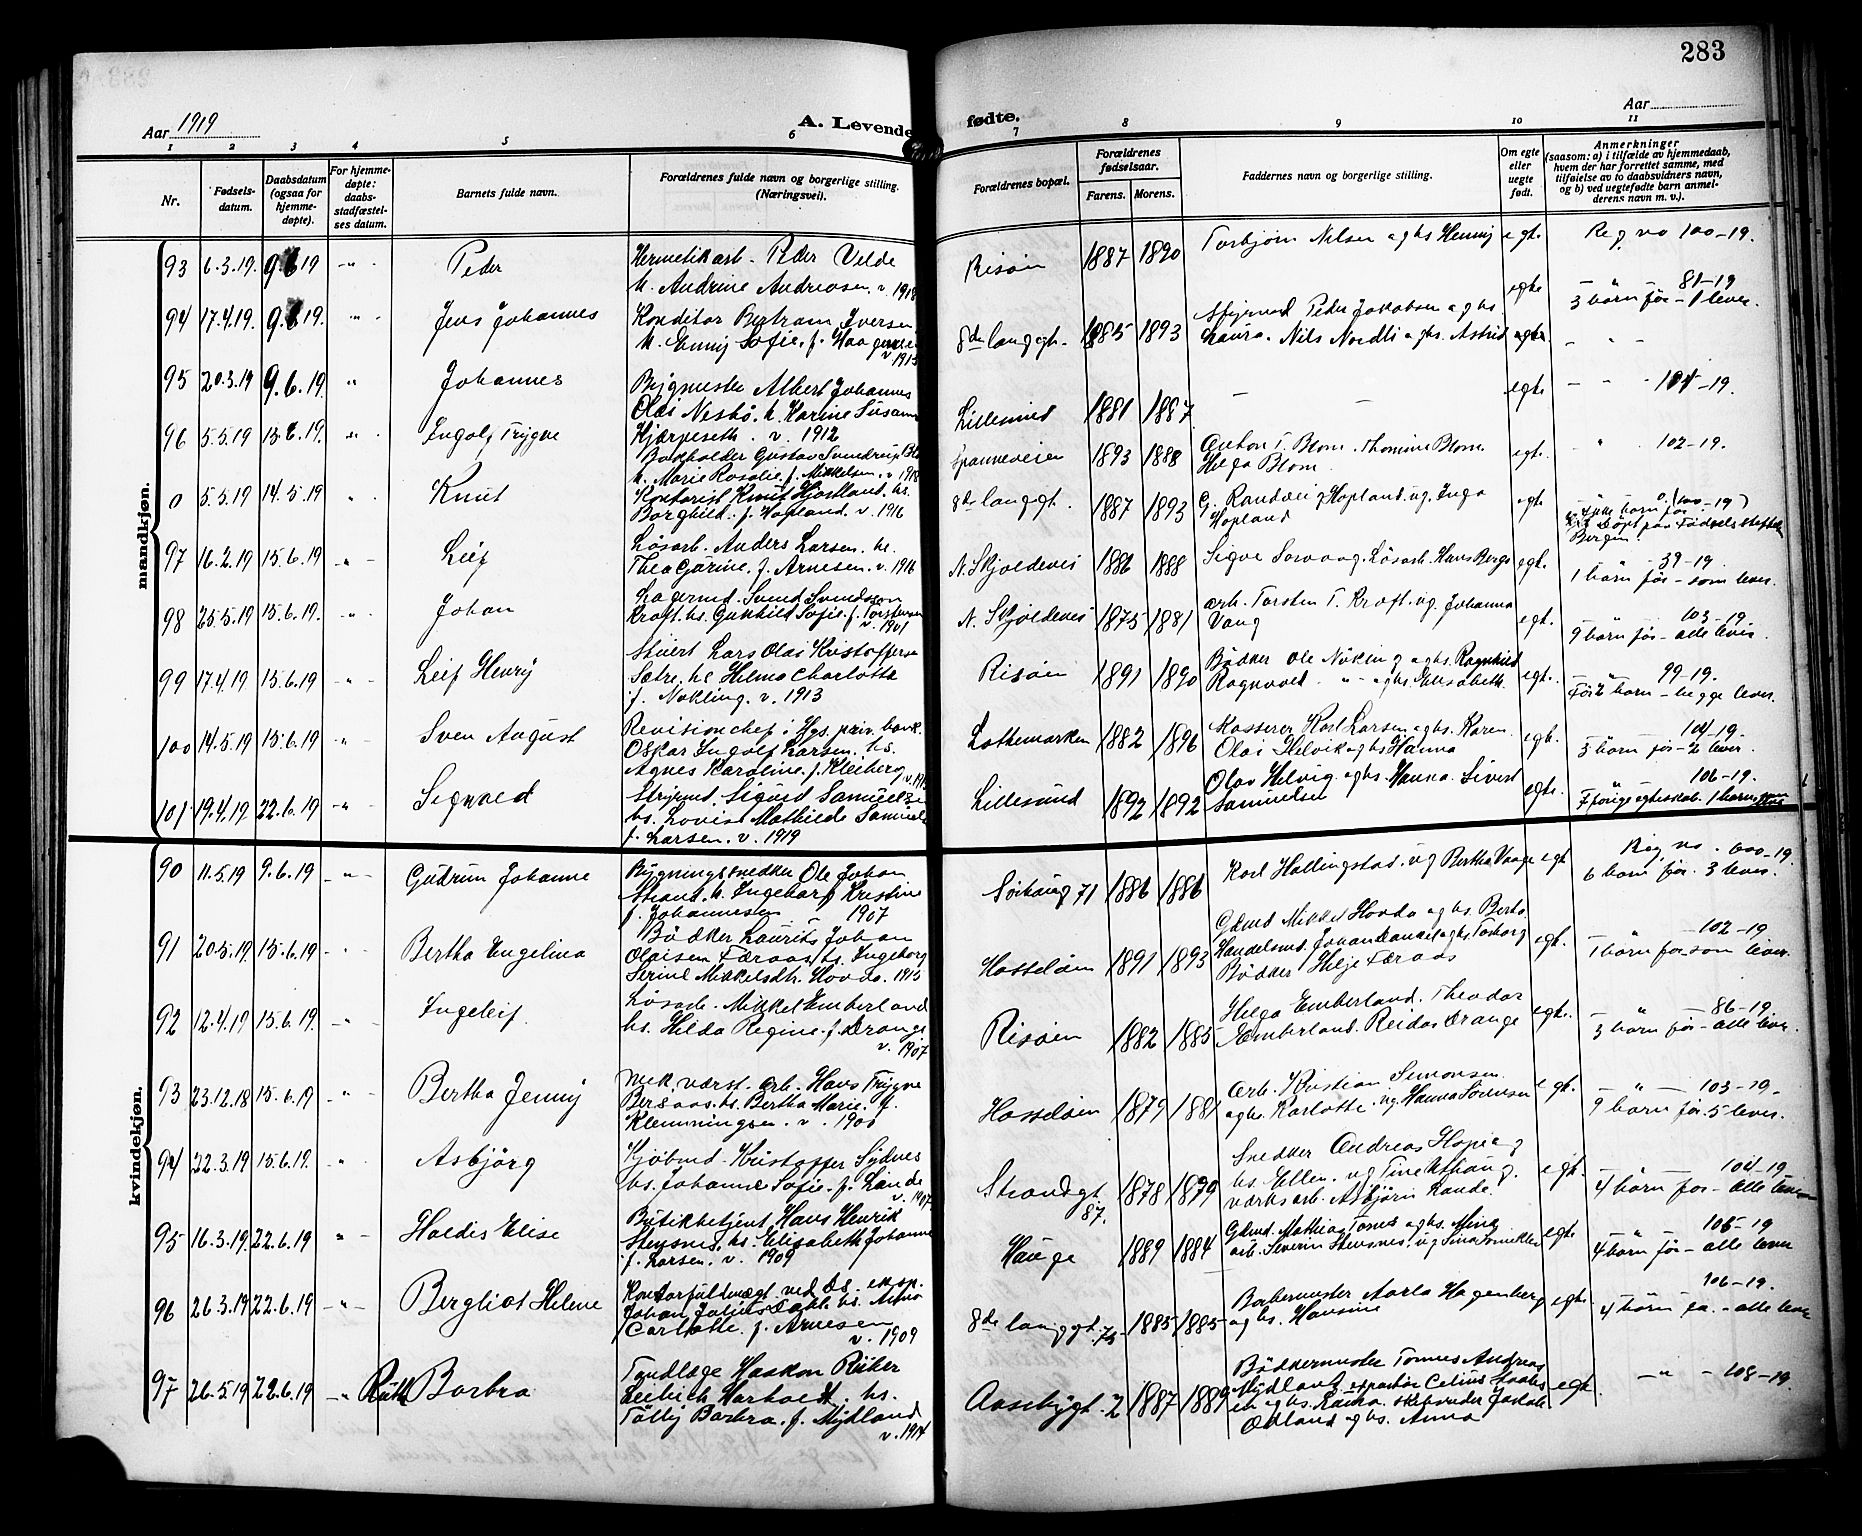 283
Aar 1919
A. Levende fødte.
Aar
1 2 3 4 5 6 7 8 9 10 11
Nr.
Fødsels-
datum.
Daabsdatum
(ogsaa for
hjemme-
døpte).
For hjemme-
døpte:
daabs-
stadfæstel-
ses datum.
Barnets fulde navn.
Forældrenes fulde navn og borgerlige stilling.
(Næringsvei).
Forældrenes bopæl.
Forældrenes
fødselsaar.
Farens. Morens.
Faddernes navn og borgerlige stilling.
Om egte
eller
uegte
født.
Anmerkninger
(saasom: a) i tilfælde av hjemmedaab,
hvem der har forrettet samme, med
tilføielse av to daabsvidners navn,
og b) ved uegtefødte barn anmel-
derens navn m. v.).
mandkjøn.
93 6.3.19. 9.6.19 Peder
Hermetikarb. Peder Velde
h. Andrine Andreasen. v. 1918
Risøin 1887 1890 Torbjørn Nilsen aghs Henny egt. Reg no 100-19.
94 17.4.19. 9.6.19. Jens Johannes
Konditor Bertram Iversen
h. Enny Sofie. f. Haagensen
v. 1913
8de langgt. 1885 1893
Peder Jakobsen aghs
Laura. Nils Nordli aghs. Astrid
egte 81-19
3 børn før - 1 lever.
95 20.3.19 9.6.19 Johannes
Bygmester Albert Johannes
Olai Nesbø. h. Karine Susanne
v. 1912
Lillesund 1881 1887 egte 101-19.
96 5.5.19 13.6.19. Ingolf Trygve
Bookholder Gustav Svendrup Blom
h. Marie Rosalie f. Mikkelsen. v. 1918
Spanneveien 1893 1888
Anton T. Blom. Thomine Blom.
Helga Blom.
egt. 102-19.
0 5.5.19 14.5.19 Knut
Kontorist Knut Hjostland. hs.
Borghild. f. Hopland. v. 1916
8de langgt. 1887 1893
Hopland og. Inga
Hopland
egt
Bergen
97 16.2.19 15.6.19. Leif
Løsarb. Anders Larsen. h.
Thea Gurine. f. Arnesen. v. 1916
N. Skjoldevei 1886 1888 Sigve Sorvaag. Løsarb. Hans Berge egt.
39-19.
1 børn før - som lever.
98 25.5.19 15.6.19. Johan
Lagermd. Svend Svendsson
Kraft. hs. Gunhild Sofie. f. Torstensen
v. 1901
N. Skjoldevei 1875 1881
arb. Torsten T. Kraft. og. Johanna
Vang
egt.
103-19
9 børn før - alle lever.
99 17.4.19 15.6.19 Leif Henry
Stuert Lars Olai Kristoffersen
Sætre. hs Helma Charlotta
f. Nøkling. v. 1913
Risøin 1891 1890
Bødker Ole Nøkling aghs. Ragnhild
Ragnvald - " - aghs. Elisabeth.
egt.
99-19.
Før 2 børn - begge lever.
100 14.5.19 15.6.19 Sven August
Revisionchef i Hgs. priv. bank.
Oskar Ingolf Larsen. hs.
Agnes Karoline. f. Kleiberg
Lothemarken 1882 1896
Kasserer Karl Larsen aghs. Karen.
Olai Helvik aghs Hanna
egt.
104-19.
3 børn før - 2 lever.
101 19.4.19 22.6.19 Sigvald
Styrmd. Sigurd Samuelsen
hs. Lovise Mathilde Samuels
f. Larsen. v. 1919
Lillesund 1892 1892
Olav Helvig. aghs. Hanna. Sivert
Samuelsen
egt.
106-19.
kvindekjøn.
90 11.5.19 9.6.19 Gudrun Johanne
Bygningssnedker Ole Johan
Strand. h. Ingeborg Kristine
f. Johannesen 1907
Sørhaug 71 1886 1886 Karl Hallingstad. og Bertha Vaage egt
Reg no. 100-19.
6 børn før. 3 lever.
91 20.5.19 15.6.19 Bertha Engelina
Bødker Laurits Johan
Olaisen Færaas. hs. Ingeborg
Serine Mikkelsdtr. Hovda. 1915
Hasseløin 1891 1893
Gdmd Mikkel Hovda aghs. Berta.
Handelsmd. Johan Daniel aghs. Torborg
Bødker Helje Færaas
egt.
102-19
1 børn før som lever.
92 12.4.19 15.6.19. Ingeleif.
Løsarb. Mikkel Emberland
hs. Hilda Regine. f. Drange
v. 1907
Risøin 1882 1885
Helga Emberland. Theodor
Emberland. Reidar Drange
egt.
86-19.
3 børn før - alle lever.
93 23.12.18 15.6.19 Bertha Jenny
Mek. værst. arb. Hans Trygve
Bersaas. hs. Bertha Marie. f.
Klemmingsen. v. 1900
Hasseløin 1879 1881
arb. Kristian Simonsen.
aghs. Karlotte. og. Hanna Sørensen
egt.
103-19.
9 børn før. 5 lever.
94 22.3.19 15.6.19. Asbjørg
Kjøbmd. Kristoffer Sydnes
hs. Johanne Sofie. f. Lande
v. 1907
Strandgt 87. 1878 1879
Snedker Andreas Hope og
hs. Ellen. og Tine
værksarb. Asbjørn Rande.
egt.
104-19
4 børn før - alle lever
95 16.3.19 22.6.19 Haldis Elise
Butikbetjent Hans Henrik
Stensnes. hs. Elisabeth Johanne
f. Larsen. v. 1909
Hauge 1889 1884
Gdmd. Mathias Tornes aghs. Mina
arb. Severin Stensnes. og
egt.
105-19
4 børn før - alle lever
96 26.3.19 22.6.19 Bergliot Helene
Kontorfuldmægt. ved eksp.
Johan Julius Dahl. hs. Anna
Carlotte. f. Arnesen
v. 1909
8de langgt. 75 1885 1885
Barbermester Aarla Hagenberg
aghs. Hansine
egt.
106-19.
4 børn før. - alle lever
97 26.5.19 22.6.19 Ruth Barbra
Tandlæge Haakon Riiber
Harboldt. hs.
Tolly Barbra. f. Mydland
v. 1914
Aasebygt. 2 1887 1889
Bødkermester Tomas Andreas
Mydland.
aghs. Anna
egt.
108-19.